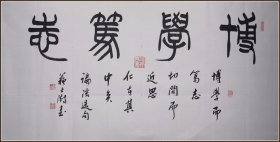 博學篤志
博學而
篤志
切問而
近思
仁在其
中矣
論語選句
蘇士澍書